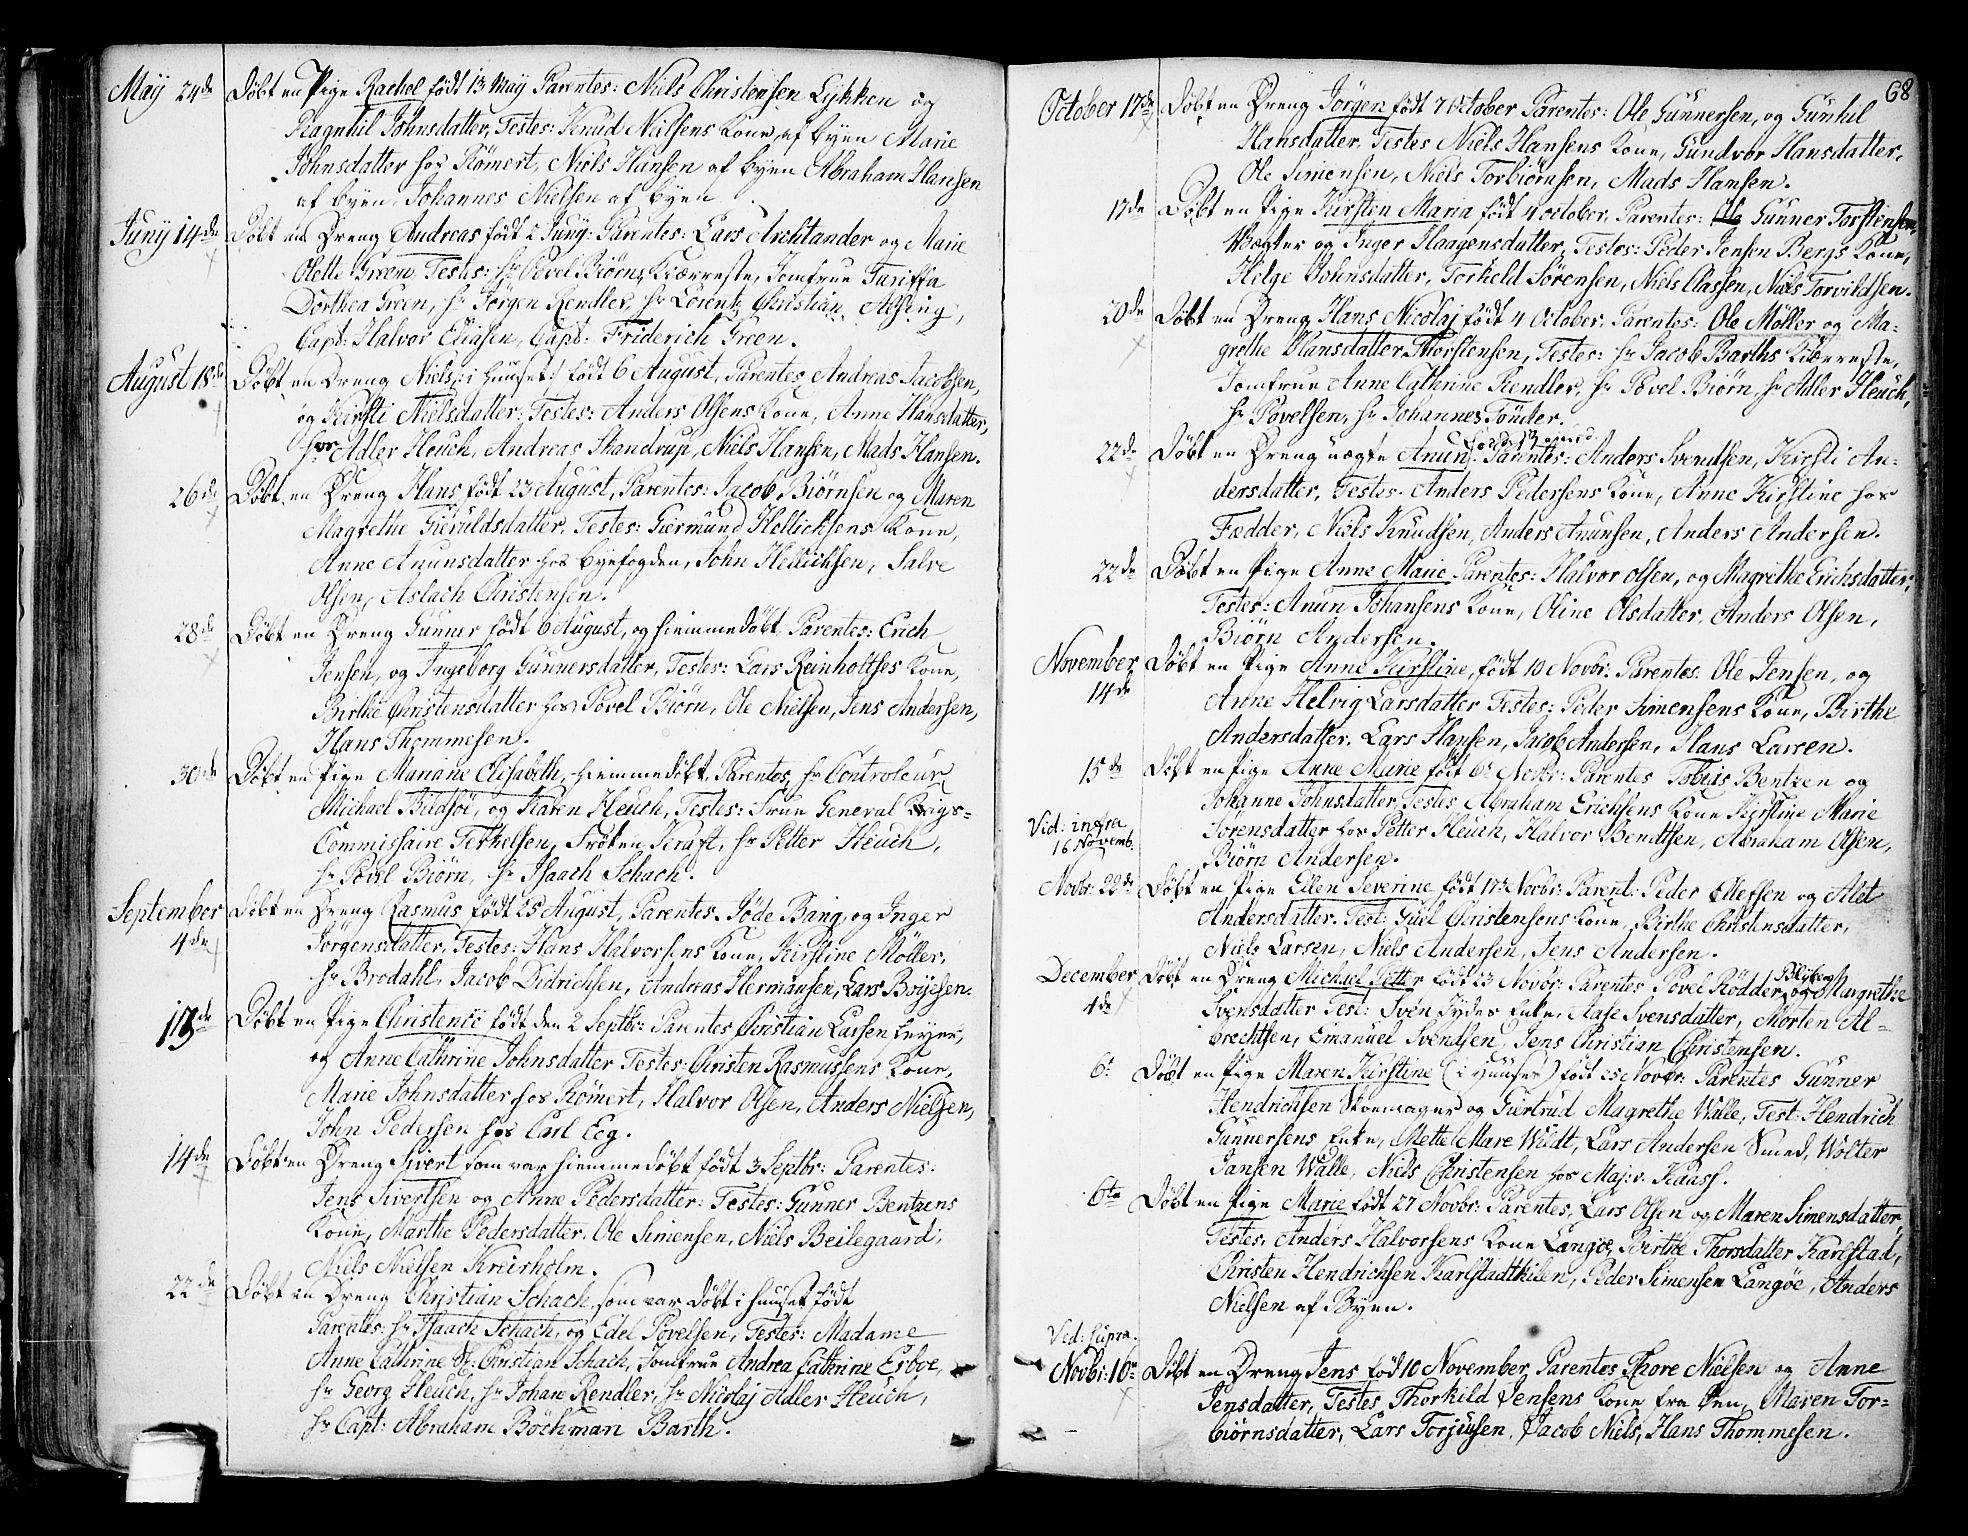 May 24de Döbt en Pige Rachel födt 13 May Parentes: Niels Christensen Lykken og
Ragnhil Johnsdatter, Testes: Knud Nielsens Kone af byen Marie
Johnsdatter hos Römert, Niels Hansen af byen Abraham Hansen
af byen, Johannes Nielsen af byen
Juny 14de Döbt en Dreng Andreas födt 2 Juny: Parentes: Lars Archtander og Marie
Olette Green, Testes: Hr Povel Biörns Kiærreste, Jomfrue Tariffa
Dorthea Green, Hr Jörgen Rendler, Hr Lorentz Christian Alsing,
Capt: Halvor Eliasen, Capt: Friderich Green.
August 18de Döbt en Dreng Niels /: i Huuset :/ födt 6 August, Parentes Andreas Jacobsen,
og Kirsti Nielsdatter, Testes: Anders Olsens Kone, Anne Hansdatter,
hos Adler Heuch, Andreas Skandrup, Niels Hansen, Mads Hansen.
26de Döbt en Dreng Hans födt 23 August, Parentes: Jacob Biörnsen og Maren
Magrethe Gieruldsdatter, Testes: Giermund Hellichsens Kone,
Anne Anunsdatter hos Byefogden, John Hellichsen, Salve
Olsen, Aslach Christensen.
28de Döbt en Dreng Gunner födt 6 August, og hiemmedöbt Parentes: Erich
Jensen, og Ingeborg Gunnersdatter, Testes: Lars Reinholtses Kone,
Birthe Christensdatter hos Povel Biörn, Ole Nielsen, Jens Andersen,
Hans Thommesen.
30de Döbt en Pige Mariane Elisabeth, hiemmedöbt, Parentes, Hr Controleur
Michael Budsöe, og Karen Heuch, Testes: Frue General Krigs-
Commissaire Terkelsen, Fröken Kraft, Hr Petter Heuch,
Hr Povel Biörn, Hr Isaach Schach.
September 4de Döbt en Dreng Rasmus födt 25 August, Parentes Jöde Bang, og Inger
Jörgensdatter, Testes: Hans Halvorsens Kone, Kirstine Möller,
Hr Brodahl, Jacob Didrichsen, Andreas Hermansen, Lars Boyesen.
13de Döbt en Pige Christence födt den 2 Septbr: Parentes Christian Lassen
og Anne Cathrine Johnsdatter Testes: Christen Rasmussens Kone,
Marie Johnsdatter hos Römert, Halvor Olsen, Anders Nielsen,
John Pedersen hos Carl Eeg.
14de Döbt en Dreng Sivert som var hiemmedöbt födt 3 Septbr: Parentes:
Jens Sivertsen og Anne Pedersdatter: Testes: Gunner Bentzens
Kone, Marthe Pedersdatter, Ole Simensen, Niels Beilegaard,
Niels Nielsen Kreirholm.
22de Döbt en Dreng Christian Schach, som var döbt i huuset födt
Parentes: Hr Isaach Schach, og Edel Povelsen, Testes: Madame
Anne Cathrine Sl: Christian Schach, Jomfrue Andrea Cathrine Esboe,
Hr Georg Heuch, Hr Johan Rendler, Hr Nicolaj Adler Heuch,
Hr Capt: Abraham Böchman Barth.
68
October 17de Döbt en Dreng Jörgen födt 7 October Parentes: Ole Gunnersen, og Gunhil
Hansdatter, Testes Niels Hansens Kone, Gundvor Hansdatter,
Ole Simensen, Niels Torbiörnsen, Mads Hansen.
17de Döbt en Pige Kirsten Maria födt 4 october, Parentes: Gunner Torstensen
Vægter og Inger Haagensdatter, Testes: Peder Jensen Bergs Kone,
Hilge Johnsdatter, Torkeld Sörensen, Niels Classen, Niels Torvildsen.
20de Döbt en Dreng Hans Nicolaj födt 4 October, Parentes: Ole Möller og Ma-
grethe Hansdatter Thorstensen, Testes: Hr Jacob Barths Kiæreste,
Jomfrue Anne Cathrine Rendler, Hr Povel Biörn, Hr Adler Heuch,
Hr Povelsen, Hr Johannes Tönder.
22de Döbt en Dreng uægte Anun, Parentes: Anders Svendsen, Kirsti An-
dersdatter, Testes: Anders Pedersens Kone, Anne Kirstine hos
Fædder, Niels Knudsen, Anders Anunsen, Anders Andersen.
22de Döbt en Pige Anne Marie Parentes: Halvor Olsen, og Magrethe Erichsdatter,
Testes: Anun Johansens Kone, Oline Olsdatter, Anders Olsen,
Biörn Andersen.
November 14de Döbt en Pige Anne Kirstine, födt 10 Novbr: Parentes: Ole Jensen, og
Anne Helvig Larsdatter Testes: Peder Simensens Kone, Birthe
Andersdatter, Lars Hansen, Jacob Andersen, Hans Larsen.
15de Döbt en Pige Anne Marie födt 6t Novbr: Parentes Tobias Bentzen og
Johanne Johnsdatter, Testes Abraham Erichsens Kone Kirstine Marie
Vid: infra
16 Novemb. Sörensdatter hos Petter Heuch, Halvor Bendtsen, Abraham Olsen,
Biörn Andersen.
Novbr: 22de Döbt en Pige Ellen Severine födt 17t Novbr: Parent: Peder Ellefsen og Alet
Andersdatter. Test: Guel Christensens Kone, Birthe Christensdatter,
Niels Larsen, Niels Andersen, Jens Andersen.
December 4de Döbt en Dreng Michael Petter födt 23 Novbr: Parentes Povel Rödder og Margrethe
Svensdatter Test: Sven Jydes Enke, Aase Svensdatter, Morten Al-
brechtsen, Emanuel Svendsen, Jens Christian Christensen.
6t Döbt en Pige Maren Kirstine (i Huuset) födt 25 Novbr: Parentes Gunner
Hendrichsen Skoemager og Giertrud Magrethe Walle, Test: Hendrich
Gunnersens Enke, Mette Mare Wildt, Lars Andersen Smed, Wolter
Jansen Walle, Niels Christensen hos Maj: v. Kaass.
6te Döbt en Pige Marie födt 27 Novbr: Parentes, Lars Olsen og Maren Simensdatter,
Testes, Anders Halvorsens Kone Langöe, Birthe Thorsdatter Karlstad,
Christen Hendrichsen Karlstadtkilen, Peder Simensen Langöe, Anders
Nielsen af Byen.
Vid: supra.
Novbr: 16de Döbt en Dreng Jens född 10 November Parentes Thore Nielsen og Anne
Jensdatter, Testes Thorkild Jensens Kone fra Öen, Maren Tor-
biörnsdatter, Lars Torjusen, Jacob Niels, Hans Thommesen.